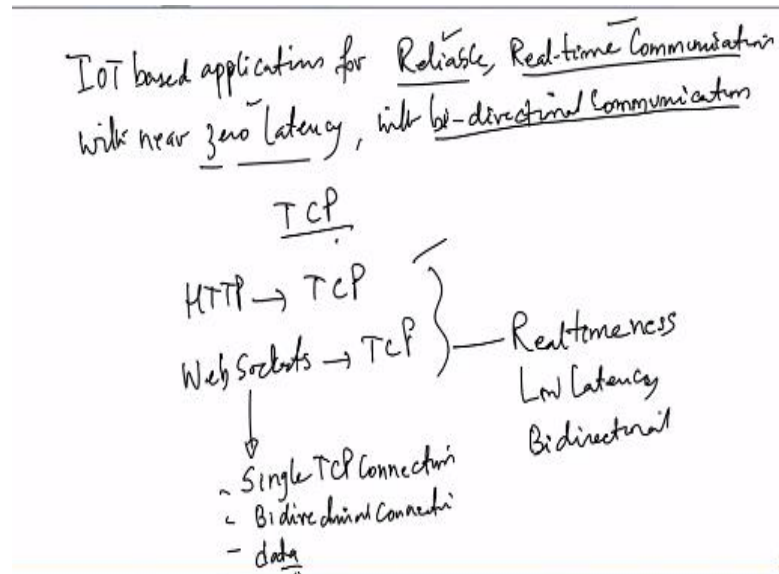 IOT based applications for Reliable, Real-time Communication
with near zero latency, with bi-directional Communication
TCP
HTTP → TCP
WebSockets → TCP
Realtimeness
Low Latency
Bidirectional
- Single TCP Connection
- Bidirectional Connecti
- data